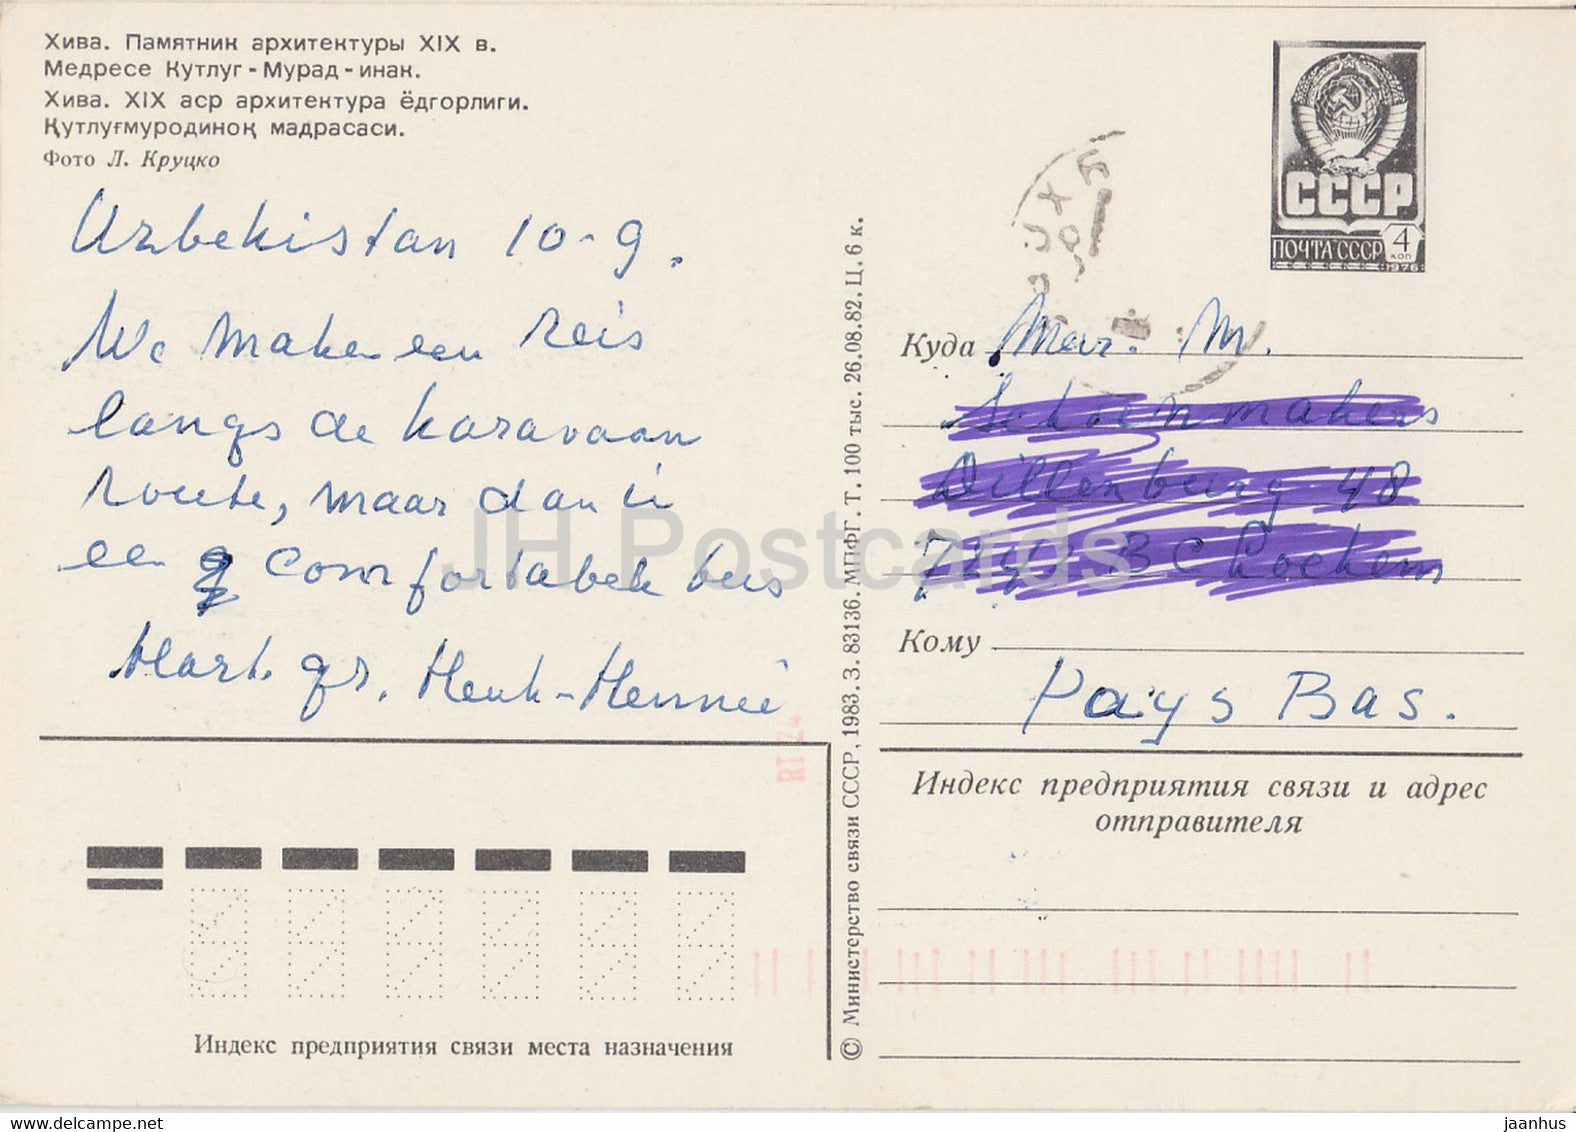 Хива. Памятник архитектуры XIX в.
Медресе Кутлуг-Мурад-инак.
Хива. XIX аср архитектура ёдгорлиги.
Қутлуғмуродиноқ мадрасаси.
Фото Л. Круцко
Uzbekistan 10-9.
We maken een reis
langs de karavaan
route, maar dan in
een comfortabele bus
Hart. gr. Henk-Hennie
© Министерство связи СССР, 1983. З. 83136. МПФГ. Т. 100 тыс. 26.08.82. Ц. 6 к.
СССР
ПОЧТА СССР 4 коп
1976
Куда
M.
Кому
Pays Bas.
Индекс предприятия связи и адрес
отправителя
Индекс предприятия связи места назначения
JH Postcards
www.delcampe.net
jaanhus